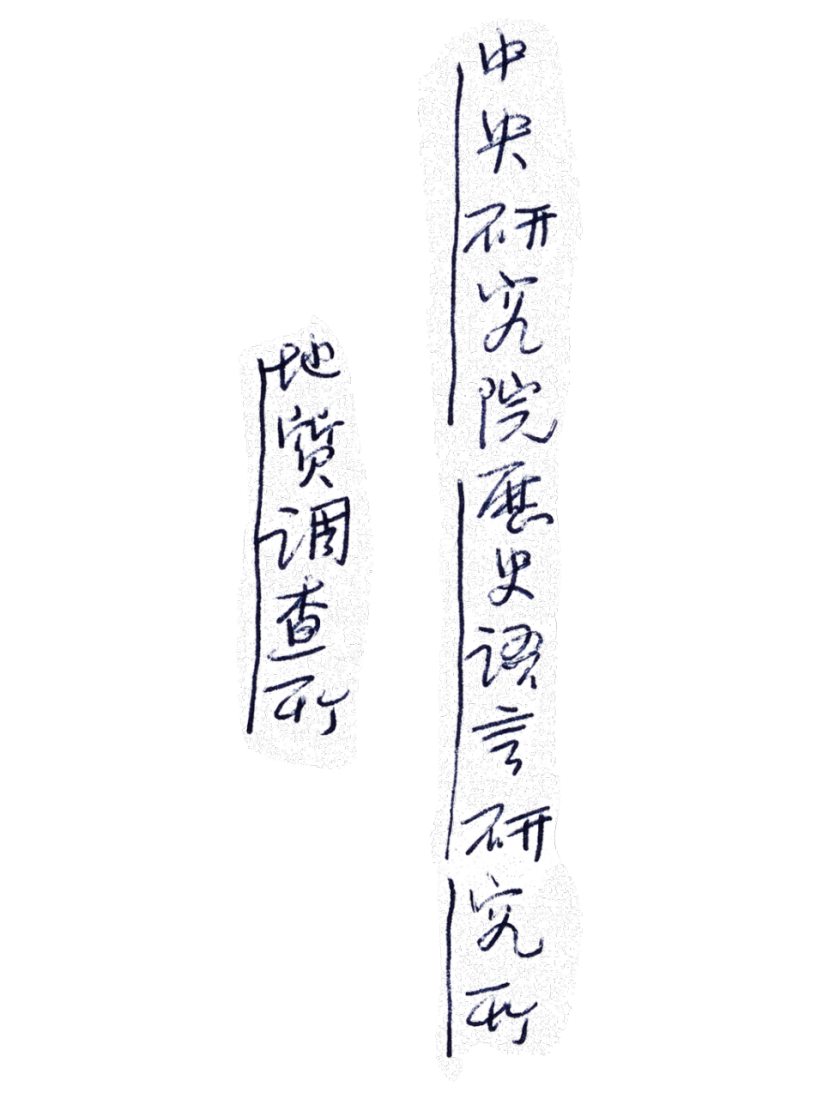 中央研究院歷史語言研究所
地質調查所